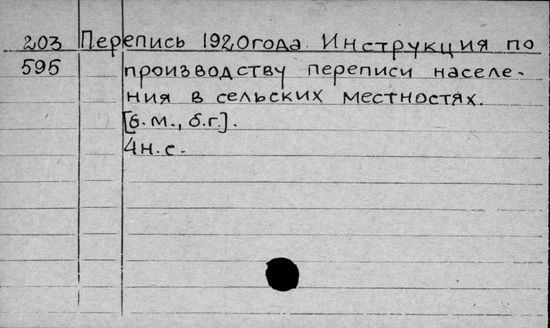 203 Перепись 1920 года. Инструкция по
595 производству переписи населе-
ния в сельских местностях.
[б.м., б.г.].
4 н.с.